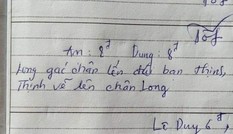 10đ
An : 8đ Dung : 8đ
Long gác chân lên đùi bạn Thịnh,
Thịnh vỗ lên chân Long
Lê Duy 6đ,